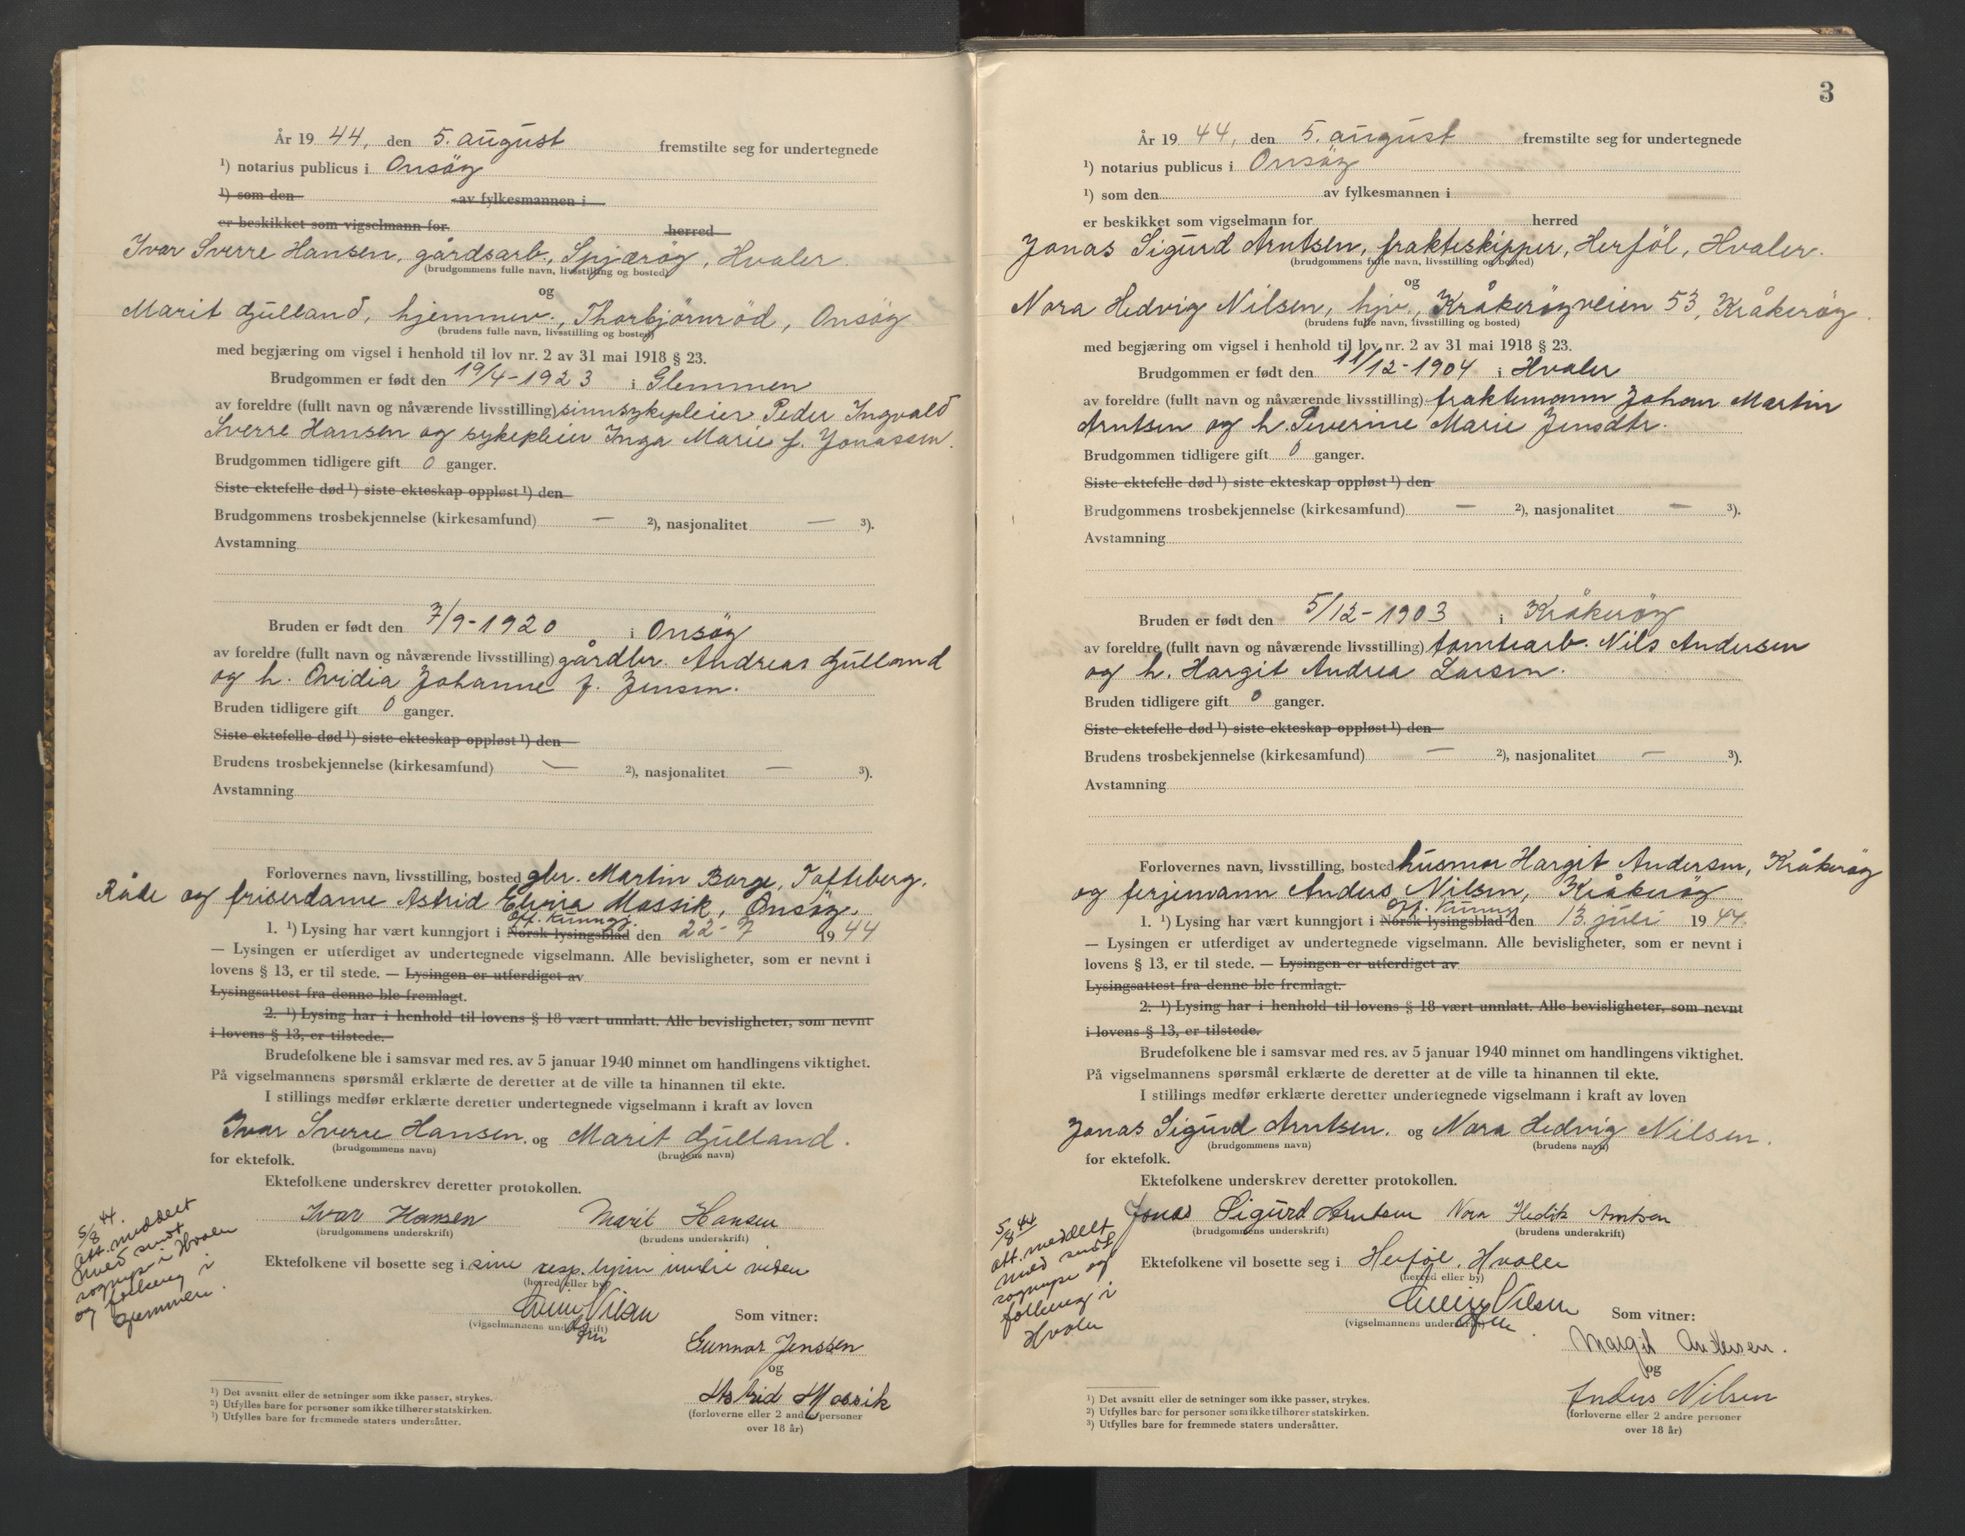 År 19 44, den 5. august fremstilte seg for undertegnede
¹) notarius publicus i Onsöy
¹) som den av fylkesmannen i
er beskikket som vigselmann for herred
Ivar Sverre Hansen, gårdsarb., Spjæröy, Hvaler.
(brudgommens fulle navn, livsstilling og bosted)
og
Marit Gulland, hjemmev., Thorbjörnröd, Onsöy
(brudens fulle navn, livsstilling og bosted)
med begjæring om vigsel i henhold til lov nr. 2 av 31 mai 1918 § 23.
Brudgommen er født den 19/4-1923 i Glemmen
av foreldre (fullt navn og nåværende livsstilling) sinnsykepleier Peder Ingvald
Sverre Hansen og sykepleier Inga Marie f. Jonassen.
Brudgommen tidligere gift 0 ganger.
Siste ektefelle død ¹) siste ekteskap oppløst ¹) den
Brudgommens trosbekjennelse (kirkesamfund) — ²), nasjonalitet — ³).
Avstamning
Bruden er født den 7/9-1920 i Onsöy
av foreldre (fullt navn og nåværende livsstilling) gårdbr. Andreas Gulland
og h. Ovidia Johanne f. Jensen.
Bruden tidligere gift 0 ganger.
Siste ektefelle død ¹) siste ekteskap oppløst ¹) den
Brudens trosbekjennelse (kirkesamfund) — ²), nasjonalitet — ³).
Avstamning
Forlovernes navn, livsstilling, bosted gbr. Martin Borge, Tofteberg,
Råde og friserdame Astrid Elvira Mossik, Onsöy.
off. kunngj.
1. ¹) Lysing har vært kunngjort i Norsk lysingsblad den 22-7 1944
— Lysingen er utferdiget av undertegnede vigselmann. Alle bevisligheter, som er nevnt i
lovens § 13, er til stede. — Lysingen er utferdiget av
Lysingsattest fra denne ble fremlagt.
2. ¹) Lysing har i henhold til lovens § 18 vært unnlatt. Alle bevisligheter, som nevnt
i lovens § 13, er tilstede.
Brudefolkene ble i samsvar med res. av 5 januar 1940 minnet om handlingens viktighet.
På vigselmannens spørsmål erklærte de deretter at de ville ta hinannen til ekte.
I stillings medfør erklærte deretter undertegnede vigselmann i kraft av loven
Ivar Sverre Hansen og Marit Gulland.
(brudgommens navn) (brudens navn)
for ektefolk.
Ektefolkene underskrev deretter protokollen.
Ivar Hansen Marit Hansen
(brudgommens underskrift) (brudens underskrift)
Ektefolkene vil bosette seg i sine resp. hjem inntil videre
(herred eller by)
Nilsen Som vitner:
(vigselmannens underskrift)
Gunnar Jenssen
og
Astrid Mossik
(forloverne eller 2 andre personer
over 18 år)
5/8 44.
att. meddelt
hved sendt
sognepr. i Hvaler
og folkereg i
Glemmen.
¹) Det avsnitt eller de setninger som ikke passer, strykes.
²) Utfylles bare for personer som ikke tilhører statskirken.
³) Utfylles bare for fremmede staters undersåtter.
3
År 19 44, den 5. august fremstilte seg for undertegnede
¹) notarius publicus i Onsöy
¹) som den av fylkesmannen i
er beskikket som vigselmann for herred
Jonas Sigurd Arntsen, frakteskipper, Herföl, Hvaler.
(brudgommens fulle navn, livsstilling og bosted)
og
Nora Hedvig Nilsen, hjv., Kråkeröyveien 53, Kråkeröy.
(brudens fulle navn, livsstilling og bosted)
med begjæring om vigsel i henhold til lov nr. 2 av 31 mai 1918 § 23.
Brudgommen er født den 11/12-1904 i Hvaler
av foreldre (fullt navn og nåværende livsstilling) fraktemann Johan Martin
Arntsen og h. Severine Marie Jensdtr.
Brudgommen tidligere gift 0 ganger.
Siste ektefelle død ¹) siste ekteskap oppløst ¹) den
Brudgommens trosbekjennelse (kirkesamfund) — ²), nasjonalitet — ³).
Avstamning
Bruden er født den 5/12-1903 i Kråkeröy
av foreldre (fullt navn og nåværende livsstilling) tomtearb. Nils Andersen
og h. Hargit Andrea Larsen.
Bruden tidligere gift 0 ganger.
Siste ektefelle død ¹) siste ekteskap oppløst ¹) den
Brudens trosbekjennelse (kirkesamfund) — ²), nasjonalitet — ³).
Avstamning
Forlovernes navn, livsstilling, bosted husmor Hargit Andersen, Kråkeröy
og ferjemann Anders Nilsen, Kråkeröy
off. kunng
1. ¹) Lysing har vært kunngjort i Norsk lysingsblad den 13. juli 1944.
— Lysingen er utferdiget av undertegnede vigselmann. Alle bevisligheter, som er nevnt i
lovens § 13, er til stede. — Lysingen er utferdiget av
Lysingsattest fra denne ble fremlagt.
2. ¹) Lysing har i henhold til lovens § 18 vært unnlatt. Alle bevisligheter, som nevnt
i lovens § 13, er tilstede.
Brudefolkene ble i samsvar med res. av 5 januar 1940 minnet om handlingens viktighet.
På vigselmannens spørsmål erklærte de deretter at de ville ta hinannen til ekte.
I stillings medfør erklærte deretter undertegnede vigselmann i kraft av loven
Jonas Sigurd Arntsen. og Nora Hedvig Nilsen.
(brudgommens navn) (brudens navn)
for ektefolk.
Ektefolkene underskrev deretter protokollen.
Jonas Sigurd Arntsen Nora Hedvik Arntsen
(brudgommens underskrift) (brudens underskrift)
Ektefolkene vil bosette seg i Herföl, Hvaler
(herred eller by)
Nilsen Som vitner:
(vigselmannens underskrift)
Margit Andersen.
og
Anders Nilsen
(forloverne eller 2 andre personer
over 18 år)
5/8 44
att. meddelt
med sendt
sognepr og
folkereg i
Hvaler
¹) Det avsnitt eller de setninger som ikke passer, strykes.
²) Utfylles bare for personer som ikke tilhører statskirken.
³) Utfylles bare for fremmede staters undersåtter.